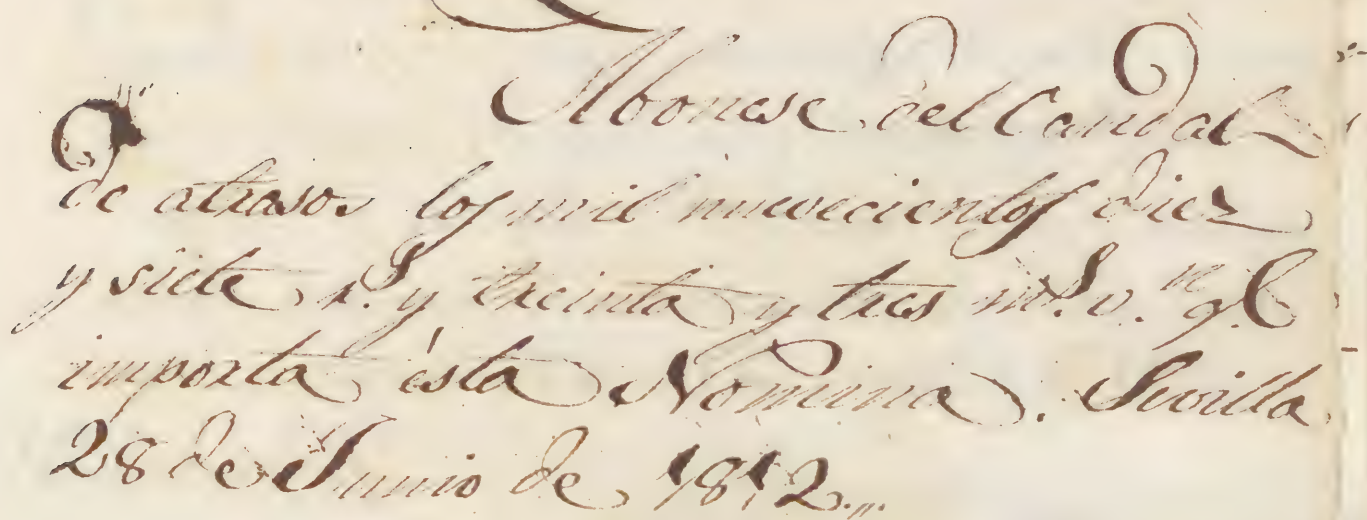 Abonese del Caudal
de atrasos los mil nuevecientos diez
y siete r.s y treinta y tres m.s v.n q.e
importa ésta Nomina. Sevilla
28 de Junio de 1812.